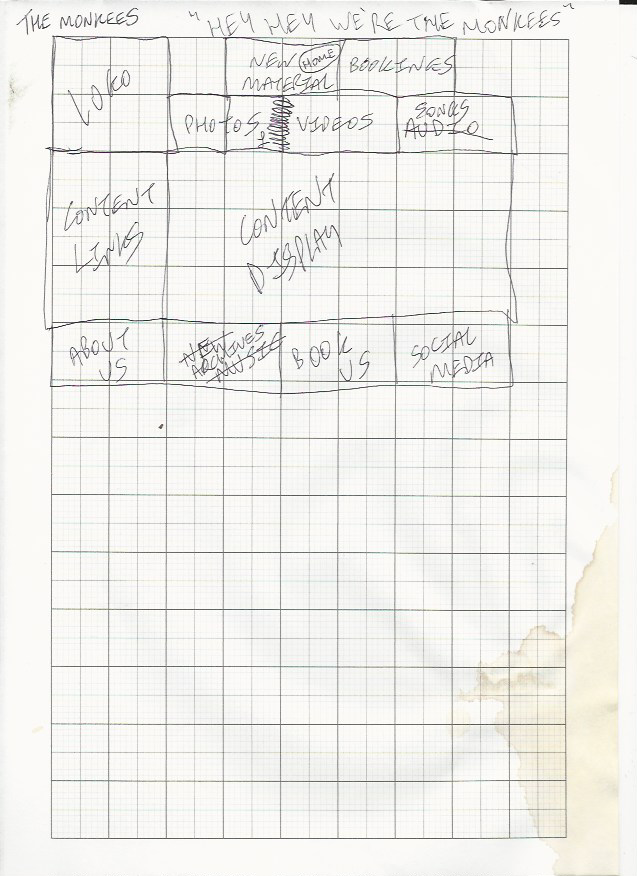 THE MONKEES "HEY HEY WE'RE THE MONKEES"
LOGO
NEW HOME
MATERIAL
BOOKINGS
PHOTOS
VIDEOS
SONGS
AUDIO
CONTENT
LINKS
CONTENT
DISPLAY
ABOUT
US
NEW
ARCHIVES
MUSIC
BOOK
US
SOCIAL
MEDIA